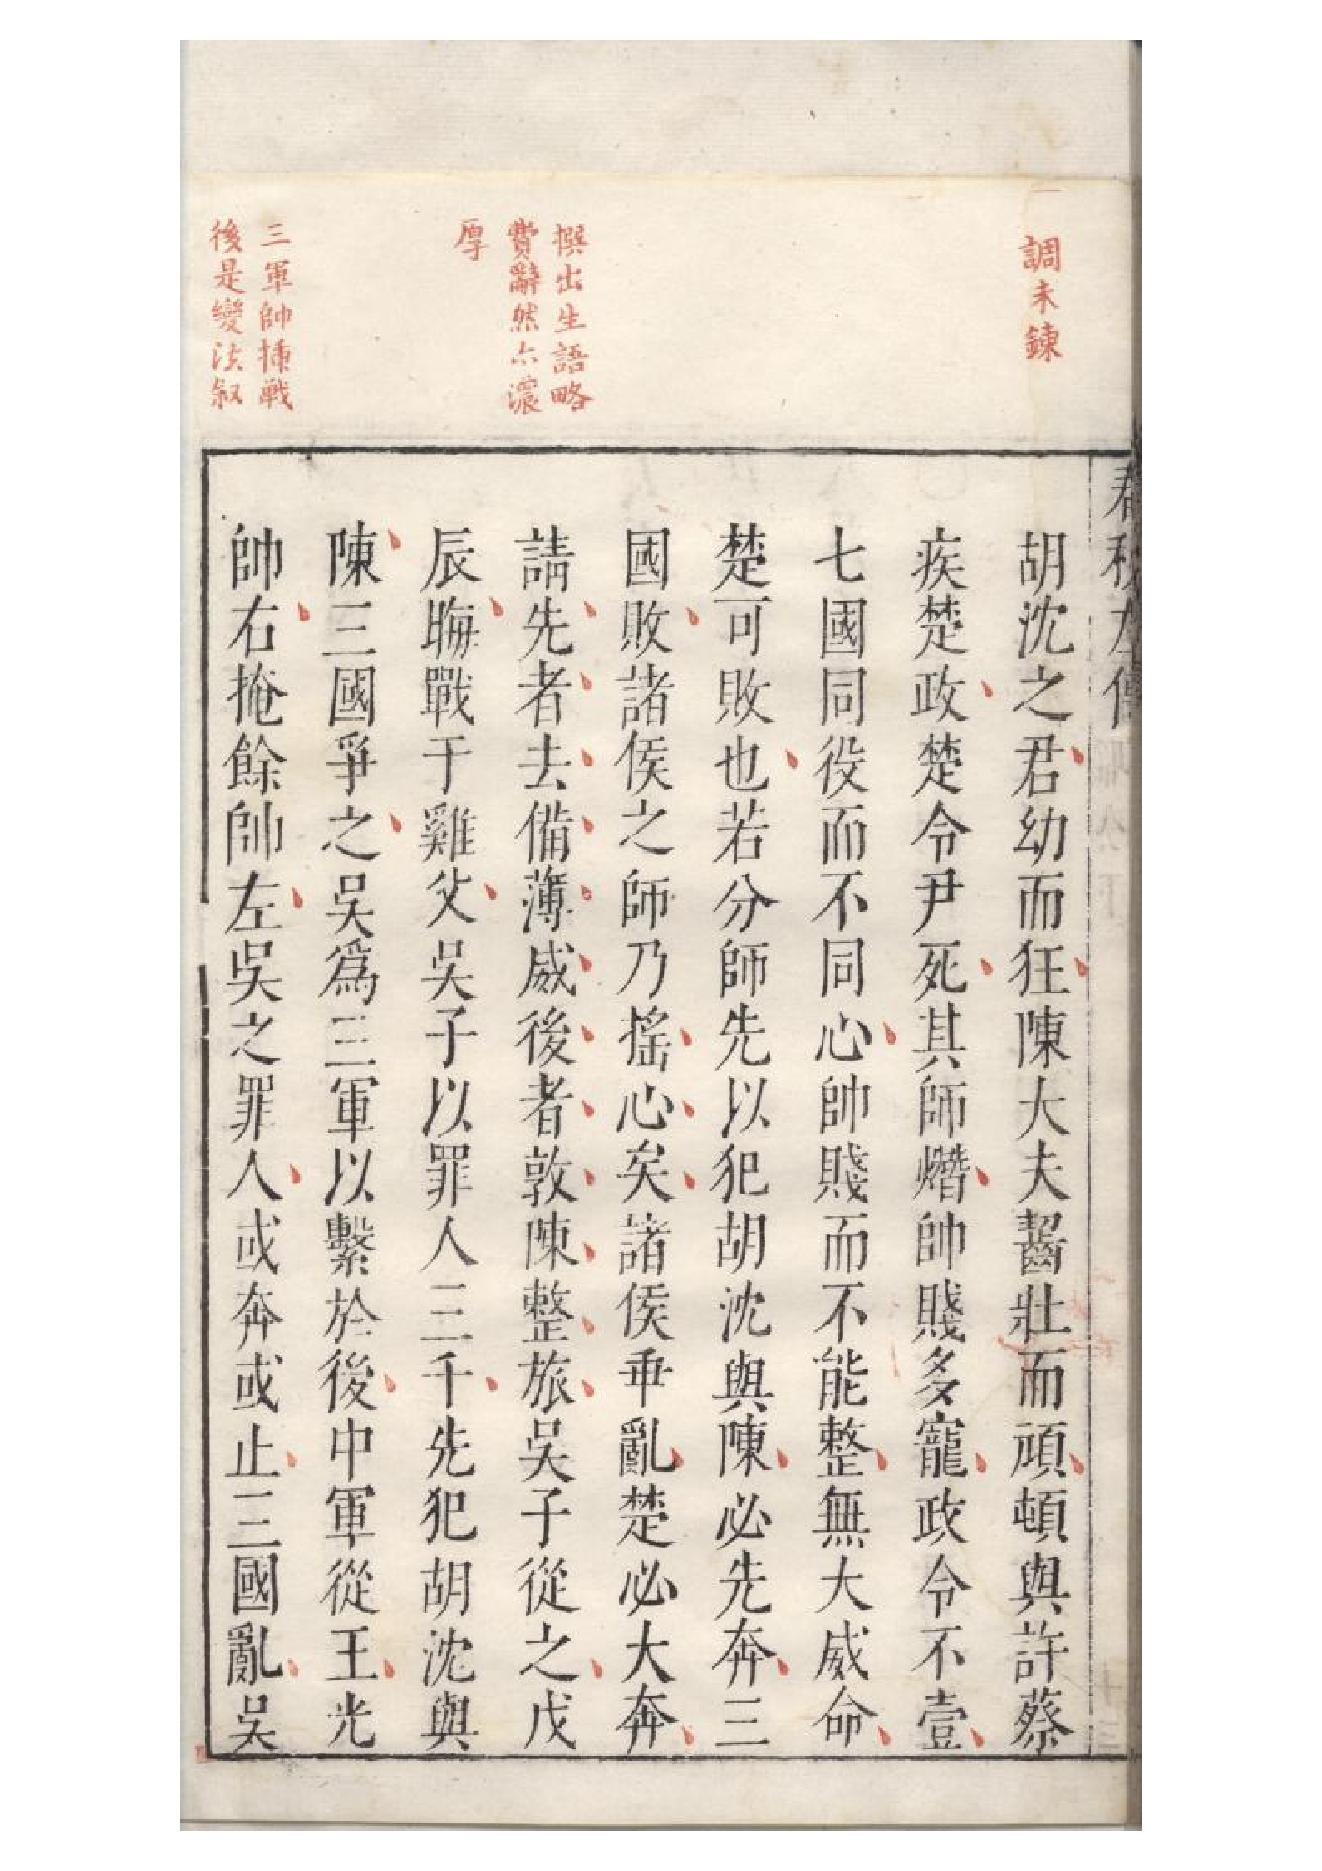 調未鍊
撰出生語略
費辭然亦濃
厚
三軍帥揷戰
後是變法敘
春秋左傳
胡沈之君幼而狂陳大夫齧壯而頑頓與許蔡
疾楚政楚令尹死其師熸帥賤多寵政令不壹
七國同役而不同心帥賤而不能整無大威命
楚可敗也若分師先以犯胡沈與陳必先奔三
國敗諸侯之師乃搖心矣諸侯乖亂楚必大奔
請先者去備薄威後者敦陳整旅吳子從之戊
辰晦戰于雞父吳子以罪人三千先犯胡沈與
陳三國爭之吳爲三軍以繫於後中軍從王光
帥右掩餘帥左吳之罪人或奔或止三國亂吳